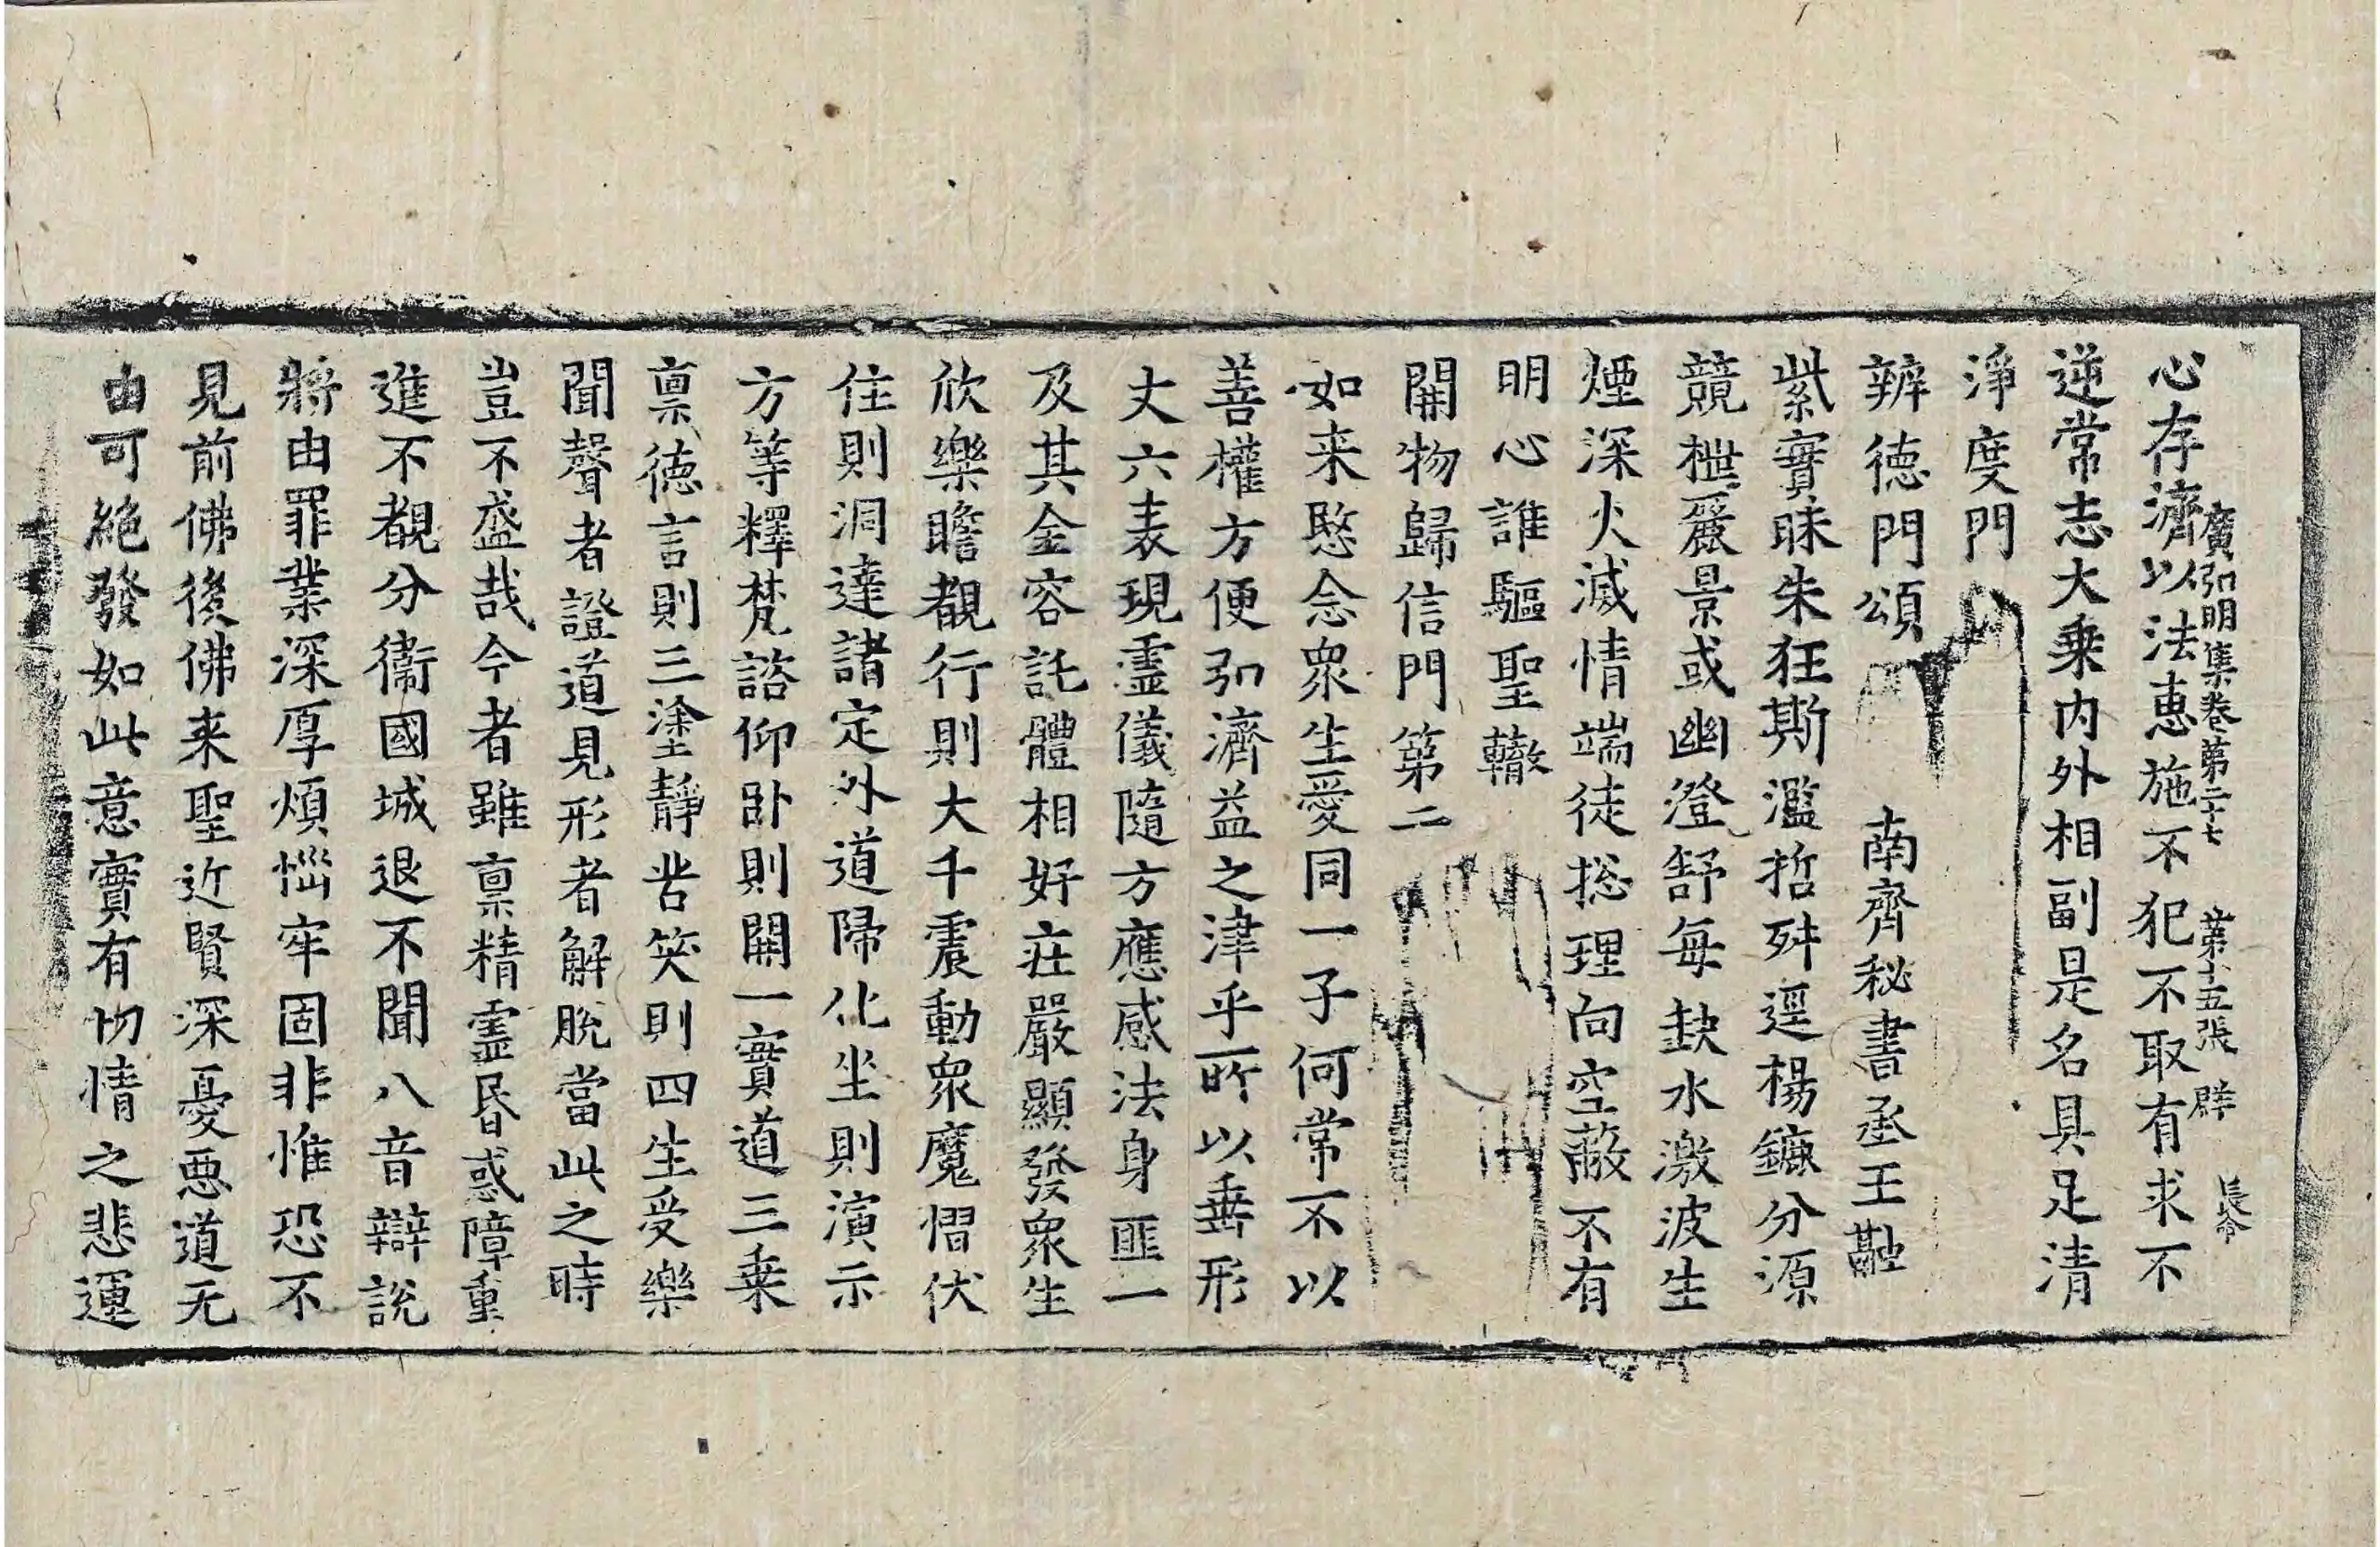 廣弘明集卷第二十七 第十五張 群 長命
心存濟以法惠施不犯不取有求不
逆常志大乗内外相副是名具足清
淨度門
辨徳門頌 南齊秘書丞王融
紫實昧朱狂斯濫哲舛逕楊鑣分源
競枻麗景或幽澄舒每缺水激波生
煙深火滅情端徒揔理向空蔽不有
明心誰驅聖轍
開物歸信門第二
如来愍念衆生愛同一子何常不以
善權方便弘濟益之津乎所以垂形
丈六表現霊儀隨方應感法身匪一
及其金容託體相好莊嚴顯發衆生
欣樂瞻覩行則大千震動衆魔慴伏
住則洞達諸定外道歸化坐則演示
方等釋梵諮仰卧則開一實道三乗
禀徳言則三塗静苦笑則四生受樂
聞聲者證道見形者解脫當此之時
豈不盛哉今者雖禀精霊昏惑障重
進不覩分衞國城退不聞八音辯說
將由罪業深厚煩惱牢固非惟恐不
見前佛後佛来聖近賢深憂悪道无
由可絶發如此意實有切情之悲運